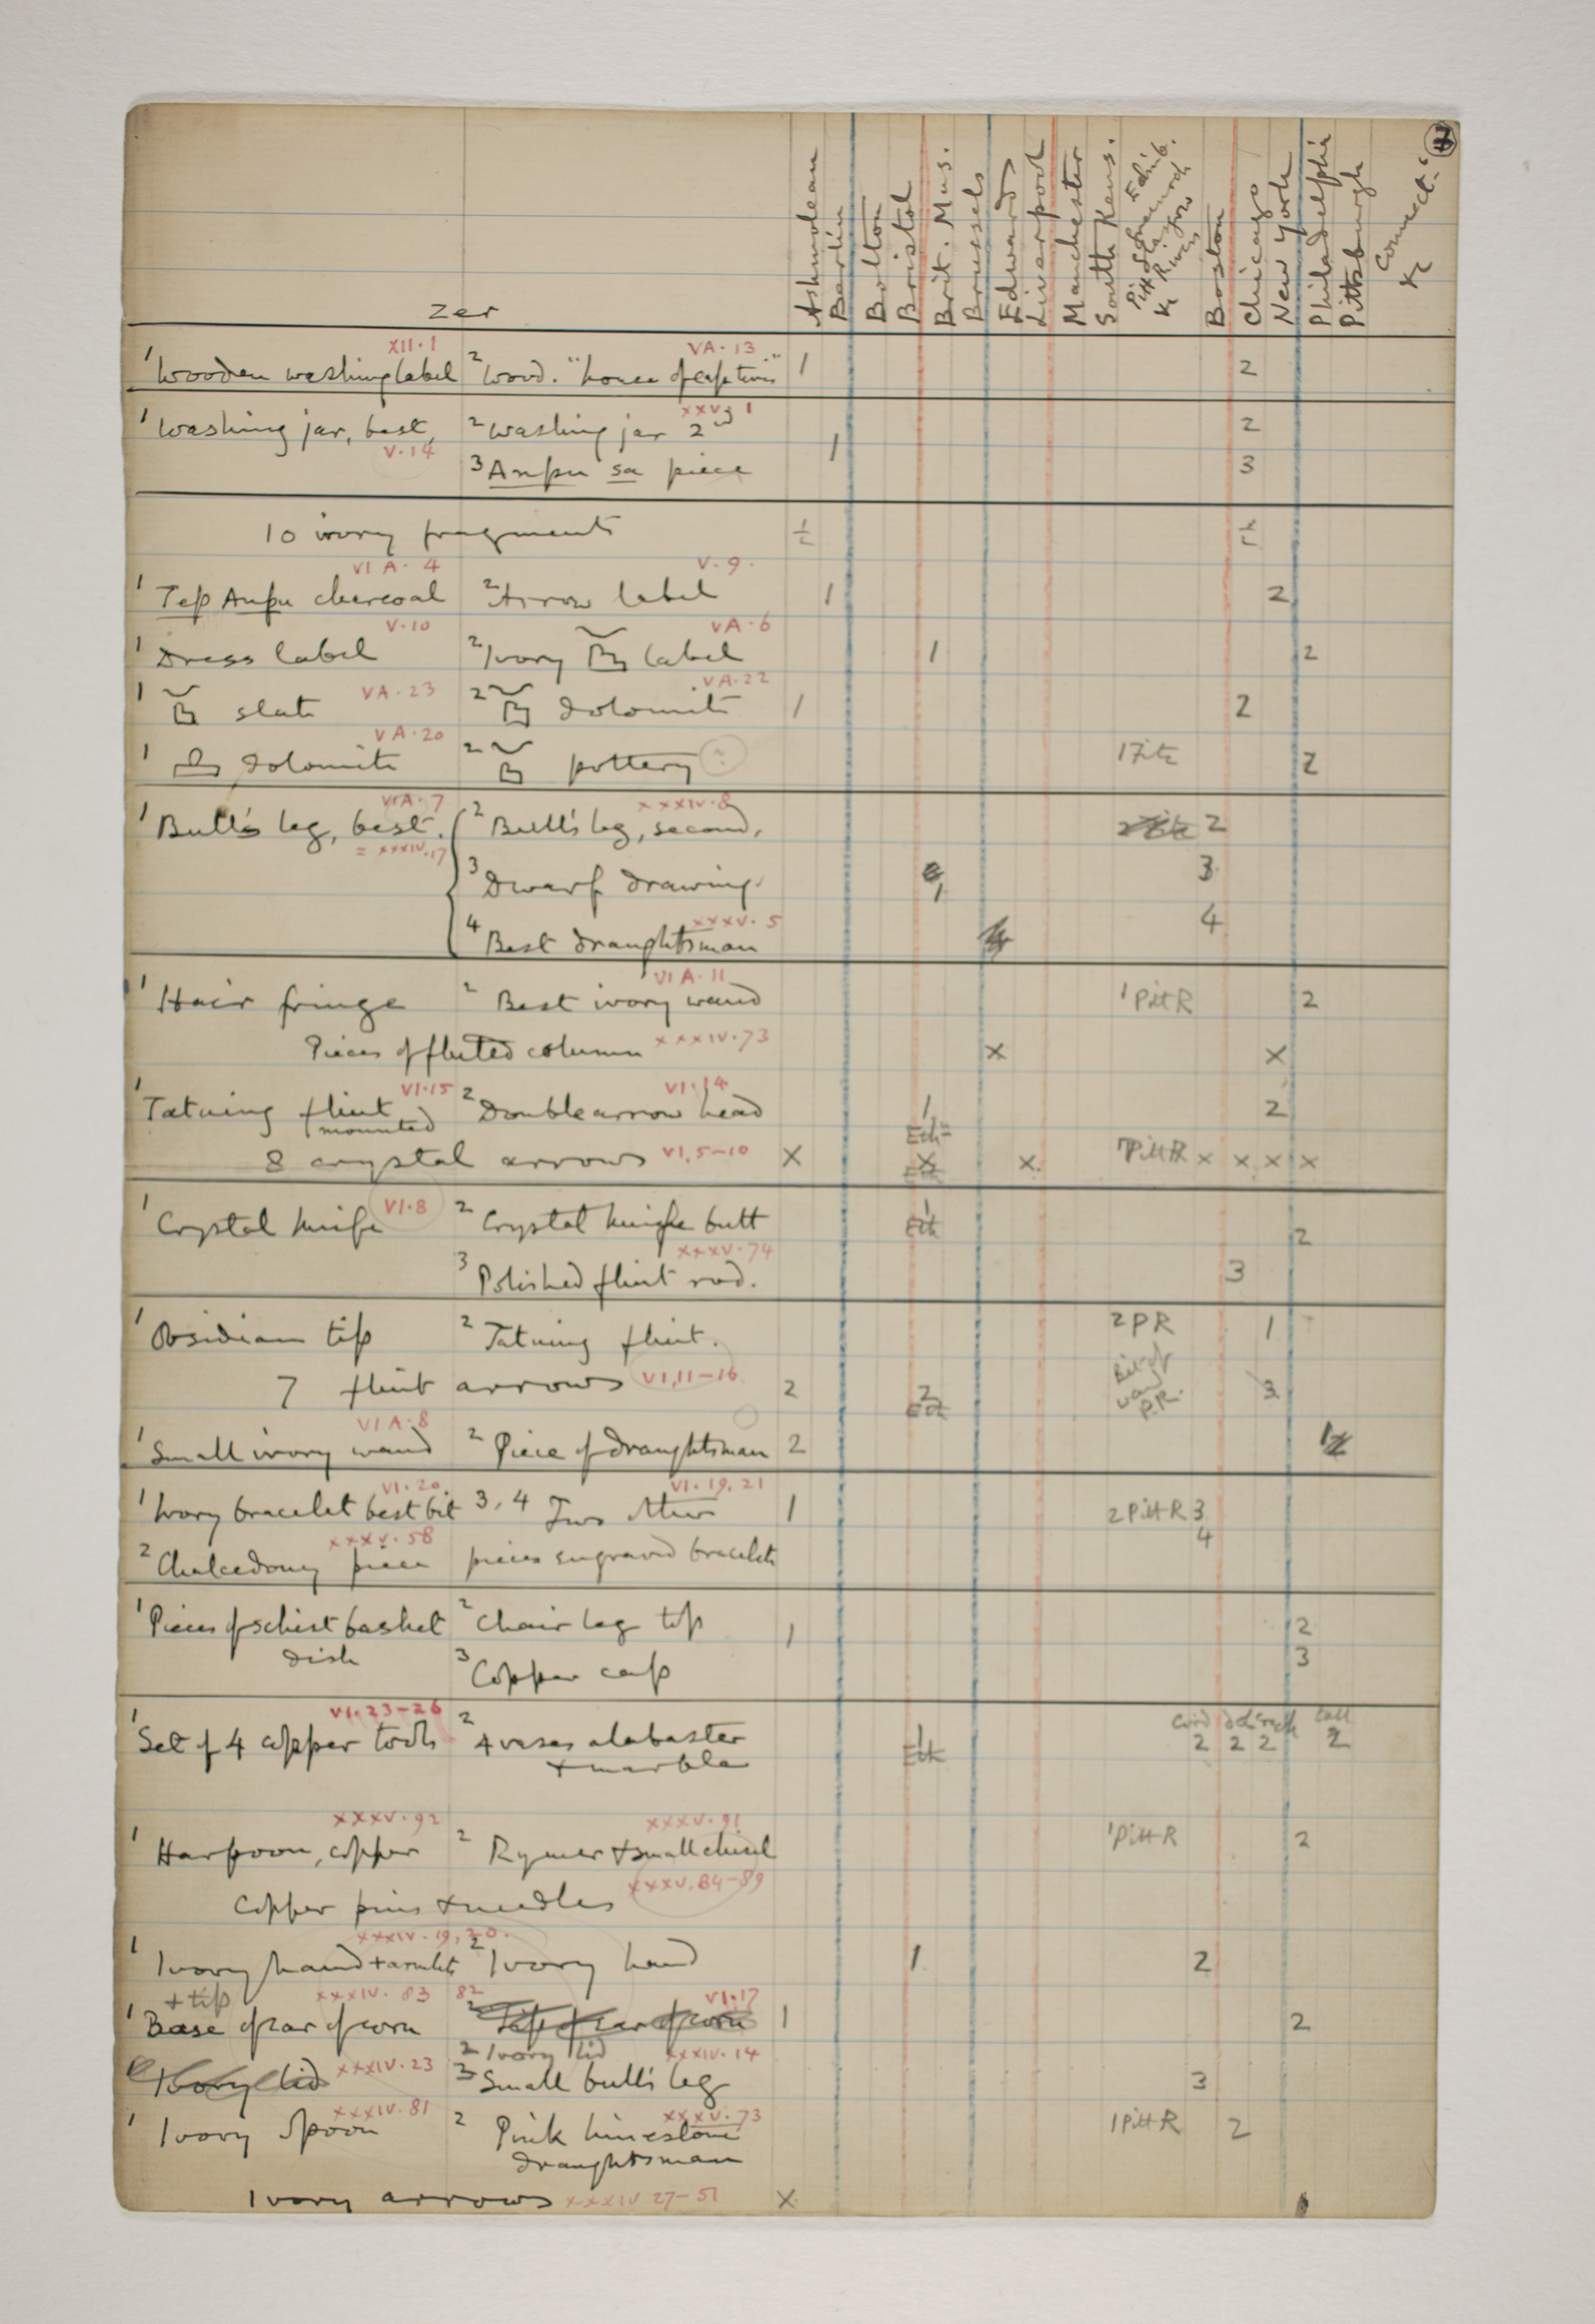 Zer
Ashmolean
Berlin
Bolton
Bristol
Brit. Mus.
Brussels
Edwards
Liverpool
Manchester
South Kens.
Boston
Chicago
New York
Philadelphia
Pittsburgh
Connect.
XII.1 VA.13
1 Wooden washing label 2 Wood. "house of captives" 1 2
XXV 1
1 Washing jar, best, 2 Washing jar 2nd 1 2
V.14
3 Anpu sa piece 3
10 ivory fragments
VI A. 4 V.9.
1 Tep Anpu charcoal 2 Arrow label 1 2
V.10 VA.6
1 Dress label 2 Ivory label 1 2
VA.23 VA.22
1 slate 2 dolomite 1 2
VA.20
1 dolomite 2 pottery ? 1 Fitz 2
VIA.7 XXXIV.8
1 Bull's leg, best. 2 Bull's leg, second, 2
= XXXIV.17
3 Dwarf drawing. 1 3
XXXV.5
4 Best draughtsman 4 4
VI A.11
1 Hair fringe 2 Best ivory wand 1 Pitt R 2
Pieces of fluted column XXXIV.73 x x
VI.15 VI.14
1 Tatuing flint mounted 2 Double arrow head 1 2
Eth
8 crystal arrows VI,5-10 x x x. Pitt R x x x x
Eth
1 Crystal knife VI.8 2 Crystal knife butt 1 Eth 2
XXXV.74
3 Polished flint rod. 3
1 Obsidian tip 2 Tatuing flint. 2 PR 1
7 flint arrows VI,11-16 2 2 Eth P.R. 3
VI A.8
1 Small ivory wand 2 Piece of draughtsman 2 1
VI.20 VI.19,21
1 Ivory bracelet best bit 3, 4 Two other 1 2 Pitt R 3
XXXV.58 4
2 Chalcedony piece pieces engraved bracelets
1 Pieces of schist basket 2 Chair leg tip 1 2
dish 3 Copper cap 3
VI.23-26
1 Set of 4 copper tools 2 4 vases alabaster 1 Eth 2 2 2 2
+ marble
XXXV.92 XXXV.91
1 Harpoon, copper 2 Rymer + small chisel 1 Pitt R 2
Copper pins + needles XXXV.84-89
XXXIV.19,20.
1 Ivory hand + armlet 2 Ivory hand 1 2
+ tip XXXIV.83 82 VI.17
1 Base of ear of corn 2 Tip of ear of corn 1 2
2 Ivory lid XXXIV.14
Ivory lid XXXIV.23 3 Small bull's leg 3
XXXIV.81 XXXV.73
1 Ivory Spoon 2 Pink limestone 1 Pitt R 2
draughtsman
Ivory arrows XXXIV 27-51 x